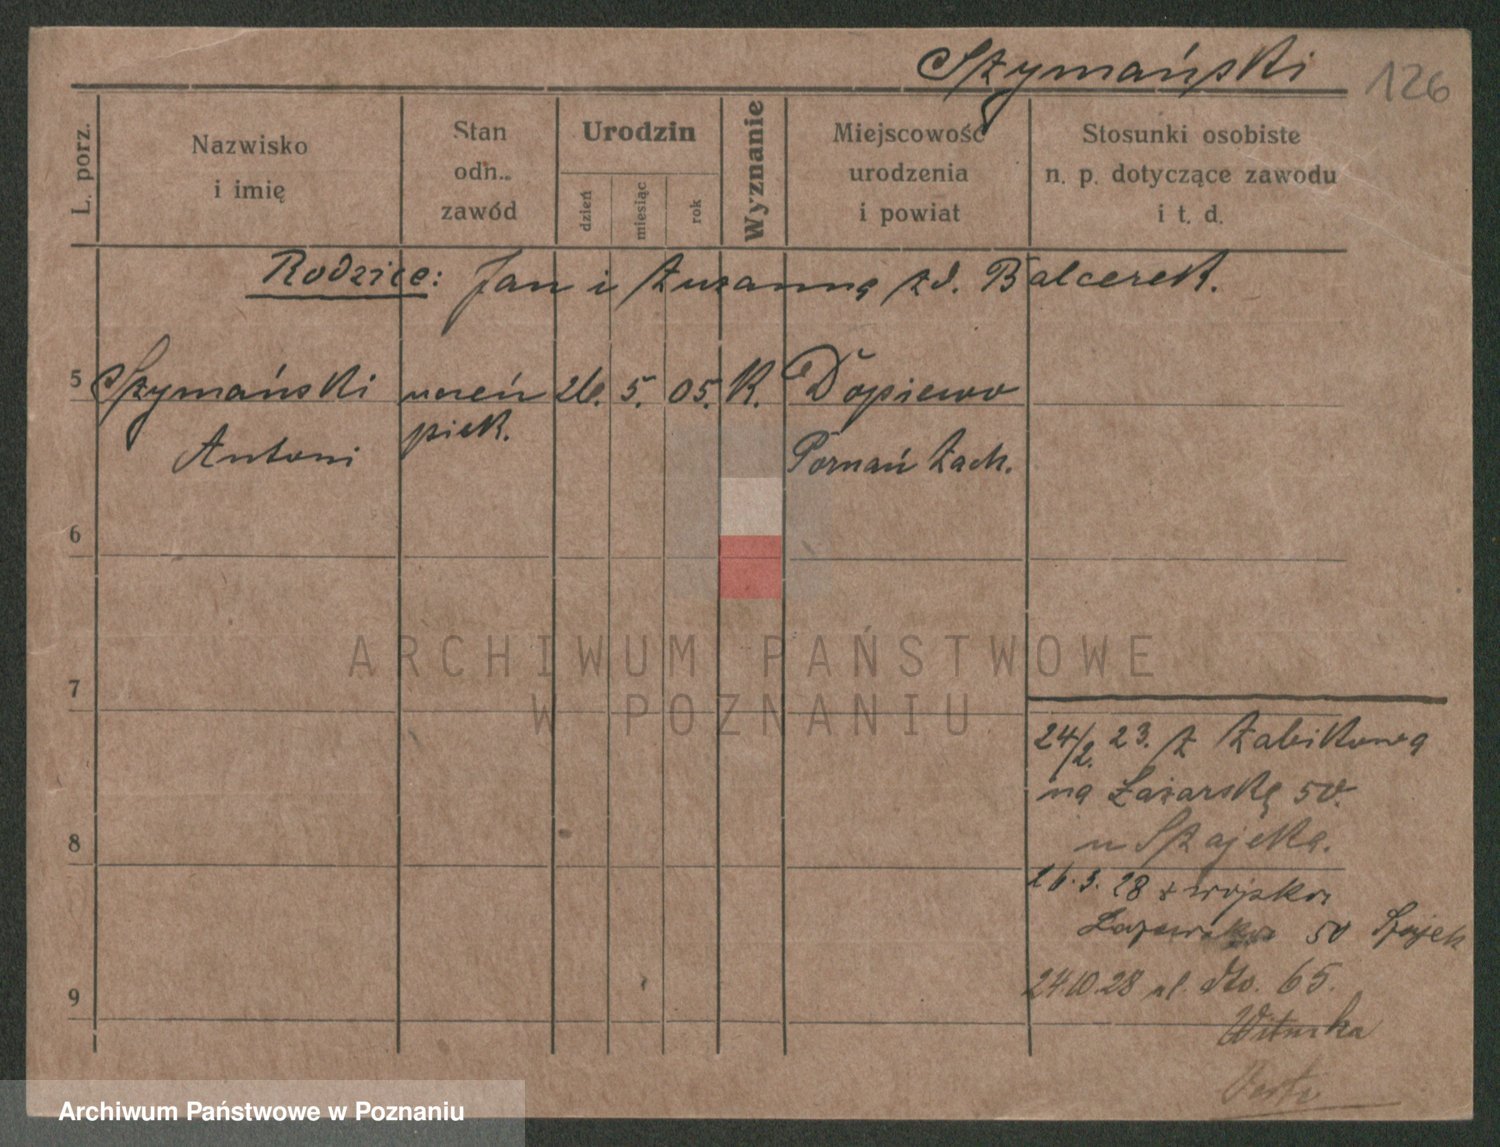 Szymański 126
L. porz.
Nazwisko
i imię
Stan
odn..
zawód
Urodzin
dzień
miesiąc
rok
Wyznanie
Miejscowość
urodzenia
i powiat
Stosunki osobiste
n. p. dotyczące zawodu
i t. d.
Rodzice: Jan i Zuzanna zd. Balcerek.
5 Szymański uczeń 26. 5. 05. K. Dopiewo
Antoni piek. Poznań Zach.
6
7
24/2. 23. z Żabikowa
na Łazarską 50.
8
u Szajeka.
16.3.28 z wojska
50 Szajek
9
24.10.28 ul. dto. 65.
ARCHIWUM PAŃSTWOWE
W POZNANIU
Archiwum Państwowe w Poznaniu